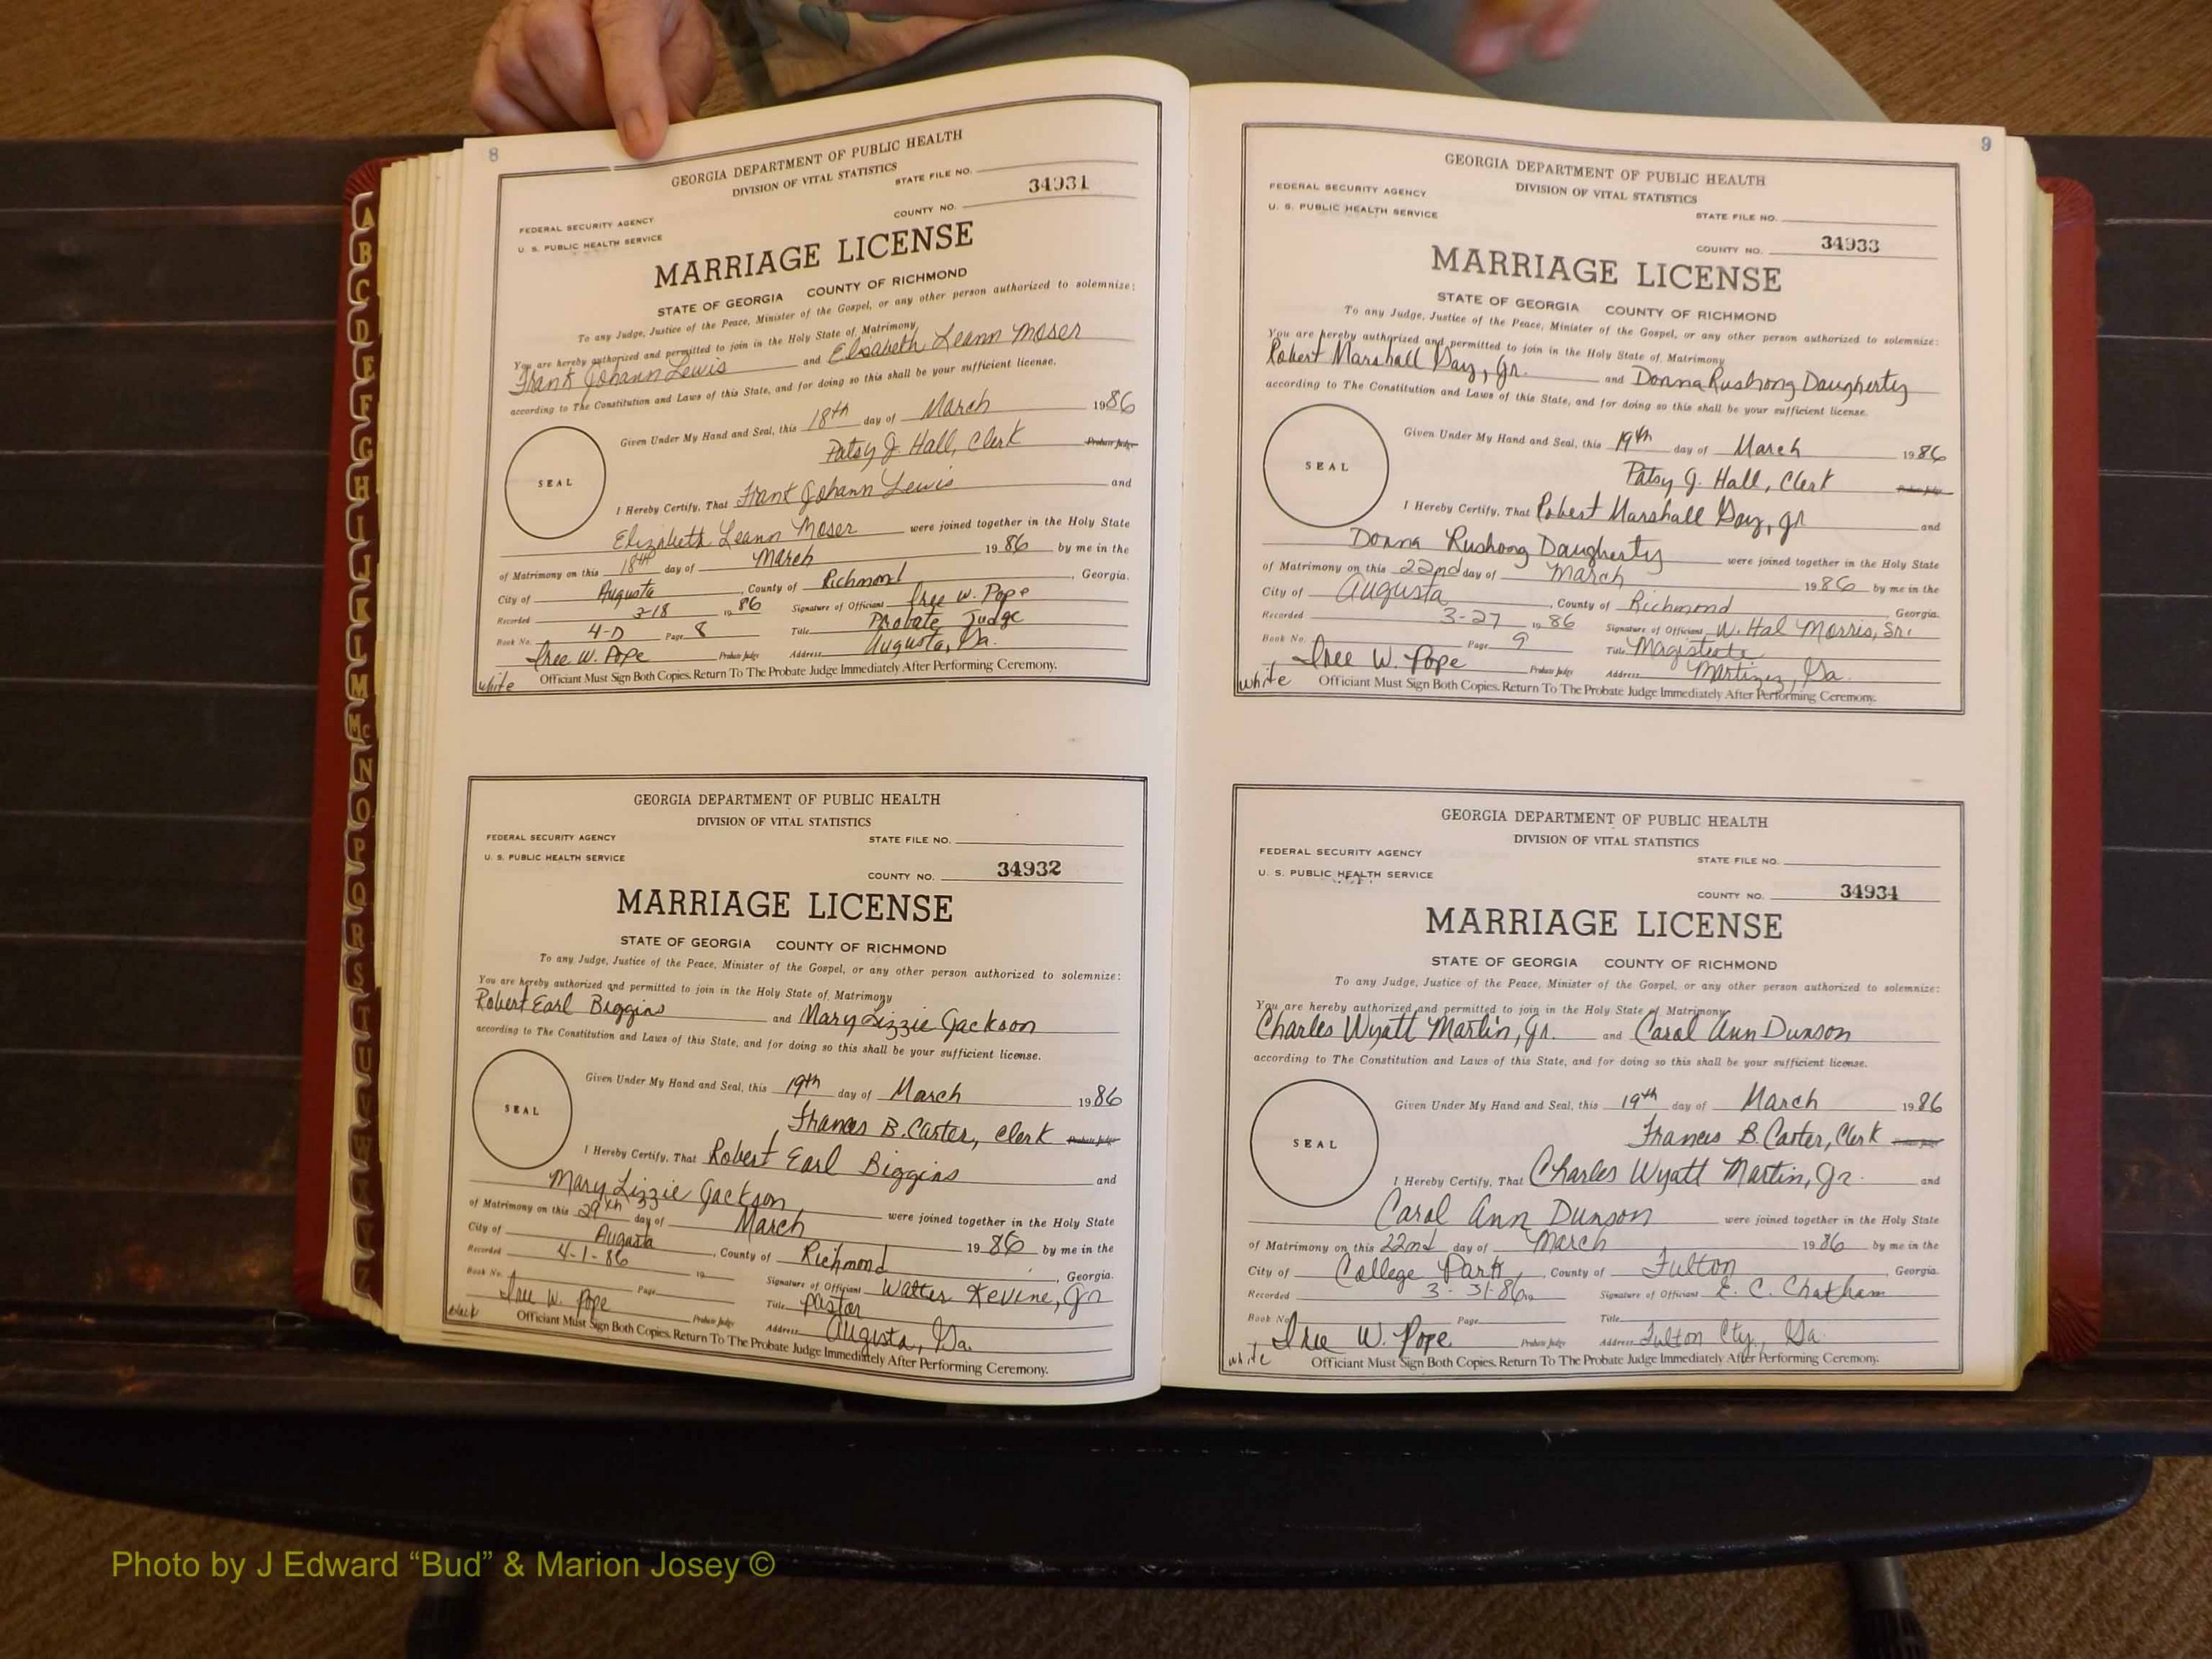 8
GEORGIA DEPARTMENT OF PUBLIC HEALTH
DIVISION OF VITAL STATISTICS
STATE FILE NO.
34931
COUNTY NO.
FEDERAL SECURITY AGENCY
U. S. PUBLIC HEALTH SERVICE
MARRIAGE LICENSE
STATE OF GEORGIA COUNTY OF RICHMOND
To any Judge, Justice of the Peace, Minister of the Gospel, or any other person authorized to solemnize:
You are hereby authorized and permitted to join in the Holy State of Matrimony
Frank Johann Lewis and Elsabeth Leann Moser
according to The Constitution and Laws of this State, and for doing so this shall be your sufficient license.
Given Under My Hand and Seal, this 18th day of March 1986
Patsy J. Hall, Clerk Probate Judge
SEAL
I Hereby Certify, That Frank Johann Lewis and
Elizabeth Leann Moser were joined together in the Holy State
of Matrimony on this 18th day of March 1986 by me in the
City of Augusta, County of Richmond, Georgia.
Recorded 3-18 1986 Signature of Officiant Iree W. Pope
Book No. 4-D Page 8 Title Probate Judge
Iree W. Pope Probate Judge Address Augusta, Ga.
white Officiant Must Sign Both Copies. Return To The Probate Judge Immediately After Performing Ceremony.
GEORGIA DEPARTMENT OF PUBLIC HEALTH
DIVISION OF VITAL STATISTICS
FEDERAL SECURITY AGENCY STATE FILE NO.
U. S. PUBLIC HEALTH SERVICE
COUNTY NO. 34932
MARRIAGE LICENSE
STATE OF GEORGIA COUNTY OF RICHMOND
To any Judge, Justice of the Peace, Minister of the Gospel, or any other person authorized to solemnize:
You are hereby authorized and permitted to join in the Holy State of Matrimony
Robert Earl Biggins and Mary Lizzie Jackson
according to The Constitution and Laws of this State, and for doing so this shall be your sufficient license.
Given Under My Hand and Seal, this 19th day of March 1986
Frances B. Carter, Clerk Probate Judge
SEAL
I Hereby Certify, That Robert Earl Biggins and
Mary Lizzie Jackson were joined together in the Holy State
of Matrimony on this 29th day of March 1986 by me in the
City of Augusta, County of Richmond, Georgia.
Recorded 4-1-86 19 Signature of Officiant Walter Kevine, Jr
Book No. Page Title Pastor
Iree W. Pope Probate Judge Address Augusta, Ga.
black Officiant Must Sign Both Copies. Return To The Probate Judge Immediately After Performing Ceremony.
9
GEORGIA DEPARTMENT OF PUBLIC HEALTH
DIVISION OF VITAL STATISTICS
FEDERAL SECURITY AGENCY
U. S. PUBLIC HEALTH SERVICE
STATE FILE NO.
COUNTY NO. 34933
MARRIAGE LICENSE
STATE OF GEORGIA COUNTY OF RICHMOND
To any Judge, Justice of the Peace, Minister of the Gospel, or any other person authorized to solemnize:
You are hereby authorized and permitted to join in the Holy State of Matrimony
Robert Marshall Day, Jr. and Donna Rushong Daugherty
according to The Constitution and Laws of this State, and for doing so this shall be your sufficient license.
Given Under My Hand and Seal, this 19th day of March 1986
Patsy J. Hall, Clerk Probate Judge
SEAL
I Hereby Certify, That Robert Marshall Day, Jr and
Donna Rushong Daugherty were joined together in the Holy State
of Matrimony on this 22nd day of March 1986 by me in the
City of Augusta, County of Richmond Georgia.
Recorded 3-27 1986 Signature of Officiant W. Hal Morris, Sr.
Book No. Page 9 Title Magistrate
Iree W. Pope Probate Judge Address Martinez, Ga.
white Officiant Must Sign Both Copies. Return To The Probate Judge Immediately After Performing Ceremony.
GEORGIA DEPARTMENT OF PUBLIC HEALTH
DIVISION OF VITAL STATISTICS
FEDERAL SECURITY AGENCY
STATE FILE NO.
U. S. PUBLIC HEALTH SERVICE
COUNTY NO. 34934
MARRIAGE LICENSE
STATE OF GEORGIA COUNTY OF RICHMOND
To any Judge, Justice of the Peace, Minister of the Gospel, or any other person authorized to solemnize:
You are hereby authorized and permitted to join in the Holy State of Matrimony
Charles Wyatt Martin, Jr. and Carol Ann Dunson
according to The Constitution and Laws of this State, and for doing so this shall be your sufficient license.
Given Under My Hand and Seal, this 19th day of March 1986
Frances B. Carter, Clerk Probate Judge
SEAL
I Hereby Certify, That Charles Wyatt Martin, Jr. and
Carol Ann Dunson were joined together in the Holy State
of Matrimony on this 22nd day of March 1986 by me in the
City of College Park, County of Fulton, Georgia.
Recorded 3-31-86 19 Signature of Officiant E. C. Chatham
Book No. Page Title
Iree W. Pope Probate Judge Address Fulton Cty, Ga.
white Officiant Must Sign Both Copies. Return To The Probate Judge Immediately After Performing Ceremony.
A
B
C
D
E
F
G
H
I
J
K
L
M
Mc
N
O
P
Q
R
S
T
U
V
W
Photo by J Edward “Bud” & Marion Josey ©